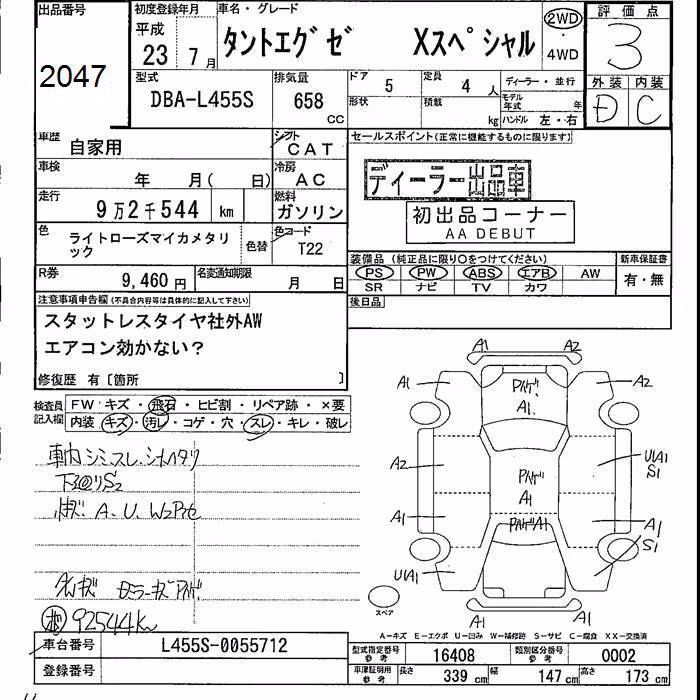 出品番号
2047
初度登録年月
平成
23年 7月
車名・グレード
タントエグゼ Xスペシャル
2WD
・
4WD
評価点
3
型式
DBA-L455S
排気量
658 CC
ドア 5
定員 4 人
ディーラー・並行
形状
積載 kg
モデル年式 年
ハンドル 左・右
外装 内装
D C
車歴
自家用
シフト
CAT
セールスポイント(正常に機能するものに限ります)
車検
年 月( 日)
冷房
AC
ディーラー出品車
走行
9万2千544 km
燃料
ガソリン
初出品コーナー
AA DEBUT
色
ライトローズマイカメタリ
ック
色替
色コード
T22
装備品(純正品に限り○をつけてください)
新車保証書
PS PW ABS エアB AW
有・無
SR ナビ TV カワ
R券
9,460円
名変通知期限
月 日
後日品
注意事項申告欄(不具合内容等は具体的に記入して下さい)
スタットレスタイヤ社外AW
エアコン効かない?
修復歴 有〔箇所 〕
検査員
記入欄
FW キズ・飛石・ヒビ割・リペア跡・×要
内装 キズ・汚レ・コゲ・穴・スレ・キレ・破レ
下回リS2
A、U、W2
92544k
A1 A2
A1 A2
A1
A2
UIA1
S1
A1
A1 A1
A1
S1
UIA1
A1 A1
スペア
A-キズ E-エクボ U-凹み W-補修跡 S-サビ C-腐食 XX-交換済
車台番号
L455S-0055712
型式指定番号
参考
16408
類別区分番号
参考
0002
登録番号
車庫証明用
参考
長さ 339 cm
幅 147 cm
高さ 173 cm